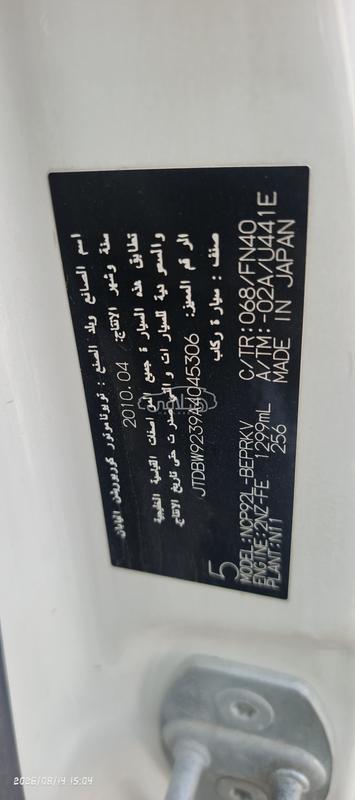 اسم الصانع وبلد الصنع : تويوتا موتور كوربوريشن اليابان
سنة وشهر الانتاج: 2010.04
تطابق هذه السيارة جميع المواصفات القياسية الخليجية
والسعودية للسيارات والتي صدرت حتى تاريخ الانتاج.
الرقم المميز: JTDBW9239A4045306
صنف : سيارة ركاب
5
MODEL:NCP92L-BEPRKV C/TR:068/FN40
ENGINE:2NZ-FE 1299mL A/TM:-02A/U441E
PLANT:N11 256 MADE IN JAPAN
2026/08/14 15:04